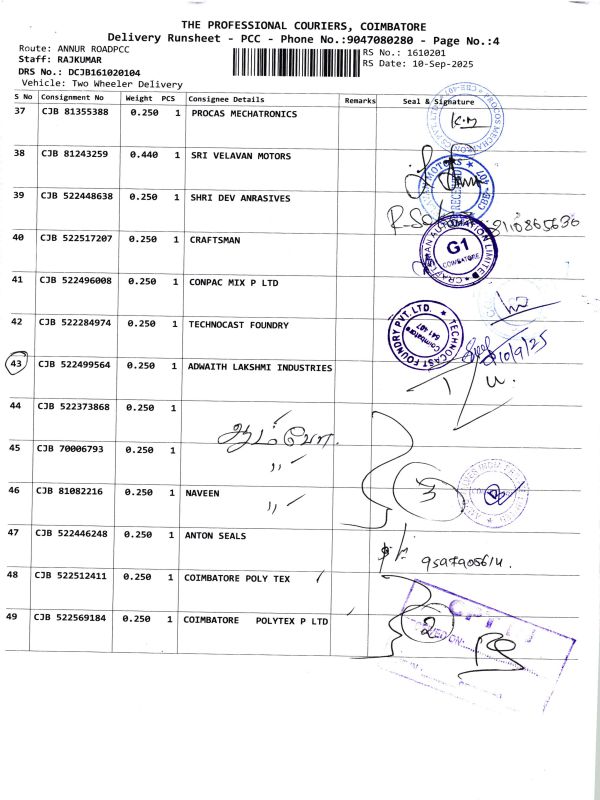 THE PROFESSIONAL COURIERS, COIMBATORE
Delivery Runsheet - PCC - Phone No.:9047080280 - Page No.:4
Route: ANNUR ROADPCC
RS No.: 1610201
Staff: RAJKUMAR
RS Date: 10-Sep-2025
DRS No.: DCJB161020104
Vehicle: Two Wheeler Delivery
S No Consignment No Weight PCS Consignee Details Remarks Seal & Signature
37 CJB 81355388 0.250 1 PROCAS MECHATRONICS K.M
38 CJB 81243259 0.440 1 SRI VELAVAN MOTORS
39 CJB 522448638 0.250 1 SHRI DEV ANRASIVES 8110865636
40 CJB 522517207 0.250 1 CRAFTSMAN
CRAFTSMAN AUTOMATION LIMITED
G1
COIMBATORE
41 CJB 522496008 0.250 1 CONPAC MIX P LTD
42 CJB 522284974 0.250 1 TECHNOCAST FOUNDRY
TECHNOCAST FOUNDRY PVT. LTD.
Coimbatore
641 407
10/9/25
43 CJB 522499564 0.250 1 ADWAITH LAKSHMI INDUSTRIES
44 CJB 522373868 0.250 1
45 CJB 70006793 0.250 1 〃
3
46 CJB 81082216 0.250 1 NAVEEN 〃
47 CJB 522446248 0.250 1 ANTON SEALS
48 CJB 522512411 0.250 1 COIMBATORE POLY TEX
49 CJB 522569184 0.250 1 COIMBATORE POLYTEX P LTD 2